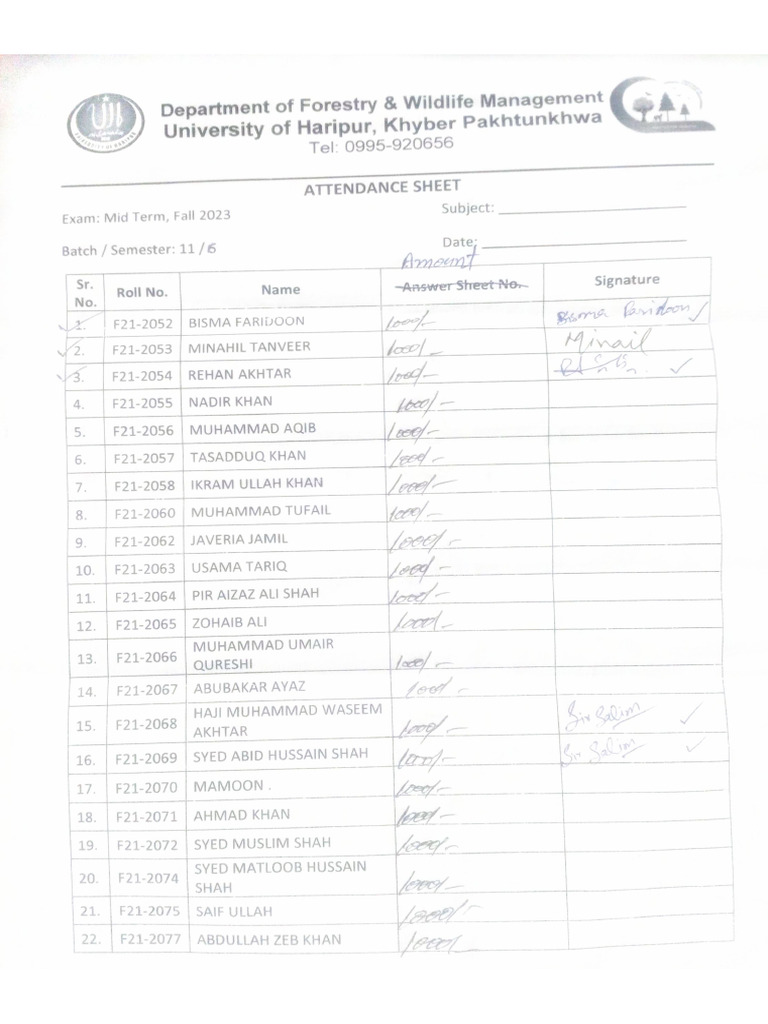 Department of Forestry & Wildlife Management
University of Haripur, Khyber Pakhtunkhwa
Tel: 0995-920656
ATTENDANCE SHEET
Exam: Mid Term, Fall 2023 Subject:
Batch / Semester: 11 / 6 Date:
Amount
Sr. No. Roll No. Name Answer Sheet No. Signature
1. F21-2052 BISMA FARIDOON 1000/- Bisma Faridoon
2. F21-2053 MINAHIL TANVEER 1000/- Minail
3. F21-2054 REHAN AKHTAR 1000/-
4. F21-2055 NADIR KHAN 1000/-
5. F21-2056 MUHAMMAD AQIB 1000/-
6. F21-2057 TASADDUQ KHAN 1000/-
7. F21-2058 IKRAM ULLAH KHAN 1000/-
8. F21-2060 MUHAMMAD TUFAIL 1000/-
9. F21-2062 JAVERIA JAMIL 1000/-
10. F21-2063 USAMA TARIQ 1000/-
11. F21-2064 PIR AIZAZ ALI SHAH 1000/-
12. F21-2065 ZOHAIB ALI 1000/-
13. F21-2066 MUHAMMAD UMAIR
QURESHI 1000/-
14. F21-2067 ABUBAKAR AYAZ 1000/-
15. F21-2068 HAJI MUHAMMAD WASEEM
AKHTAR 1000/- Sir Salim
16. F21-2069 SYED ABID HUSSAIN SHAH 1000/- Sir Salim
17. F21-2070 MAMOON . 1000/-
18. F21-2071 AHMAD KHAN 1000/-
19. F21-2072 SYED MUSLIM SHAH 1000/-
20. F21-2074 SYED MATLOOB HUSSAIN
SHAH 1000/-
21. F21-2075 SAIF ULLAH 1000/-
22. F21-2077 ABDULLAH ZEB KHAN 1000/